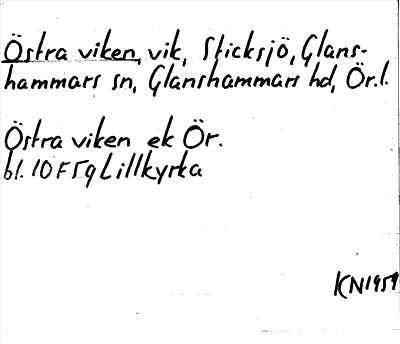 Östra viken, vik, Sticksjö, Glans-
hammars sn, Glanshammars hd, Ör.l.
Östra viken ek Ör.
bl. 10F5g Lillkyrka
KN1959